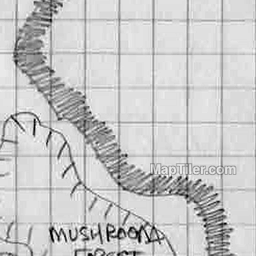 MapTiler.com
MUSHROOM
FOREST